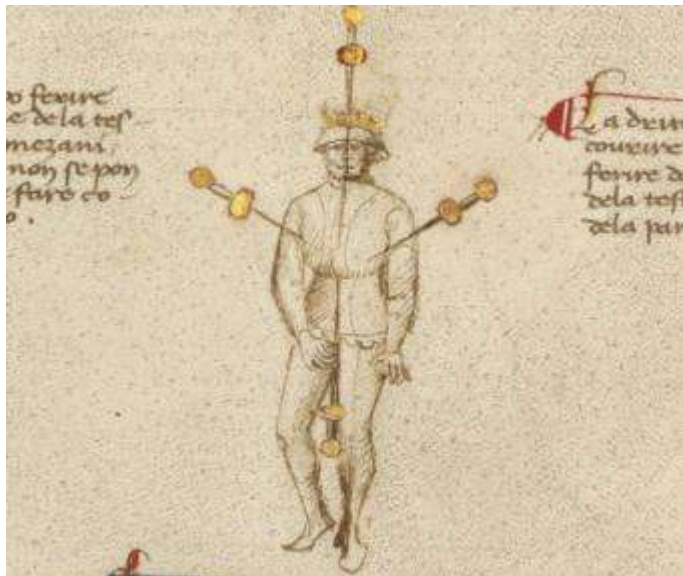 o ferire
e dela tes
mezani,
non se pon
fare co
o.
La drit
courire
ferire de
dela test
dela par